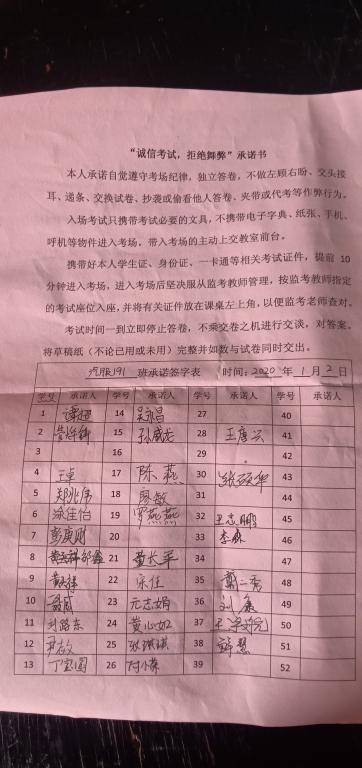 “诚信考试，拒绝舞弊”承诺书
本人承诺自觉遵守考场纪律，独立答卷，不做左顾右盼、交头接
耳、递条、交换试卷、抄袭或偷看他人答卷、夹带或代考等作弊行为。
入场考试只携带考试必要的文具，不携带电子字典、纸张、手机、
呼机等物件进入考场，带入考场的主动上交教室前台。
携带好本人学生证、身份证、一卡通等相关考试证件，提前 10
分钟进入考场，进入考场后坚决服从监考教师管理，按监考教师指定
的考试座位入座，并将有关证件放在课桌左上角，以便监考老师查对。
考试时间一到立即停止答卷，不乘交卷之机进行交谈，对答案。
将草稿纸（不论已用或未用）完整并如数与试卷同时交出。
汽服191 班承诺签字表 时间：2020 年 1 月 2 日
学号 承诺人 学号 承诺人 学号 承诺人 学号 承诺人
1 谭超 14 吴永昌 27 40
2 15 孙威龙 28 王唐兴 41
3 16 29 42
4 王卓 17 陈燕 30 张硕华 43
5 郑兆伟 18 廖敏 31 44
6 涂佳怡 19 罗燕燕 32 王志鹏 45
7 彭庚刚 20 33 李森 46
8 21 黄长军 34 47
9 22 宋佳 35 48
10 聂威 23 元志娟 36 刘康 49
11 刘路东 24 黄心如 37 50
12 尹放 25 张琪琪 38 韩慧 51
13 丁宝圆 26 付小荣 39 52